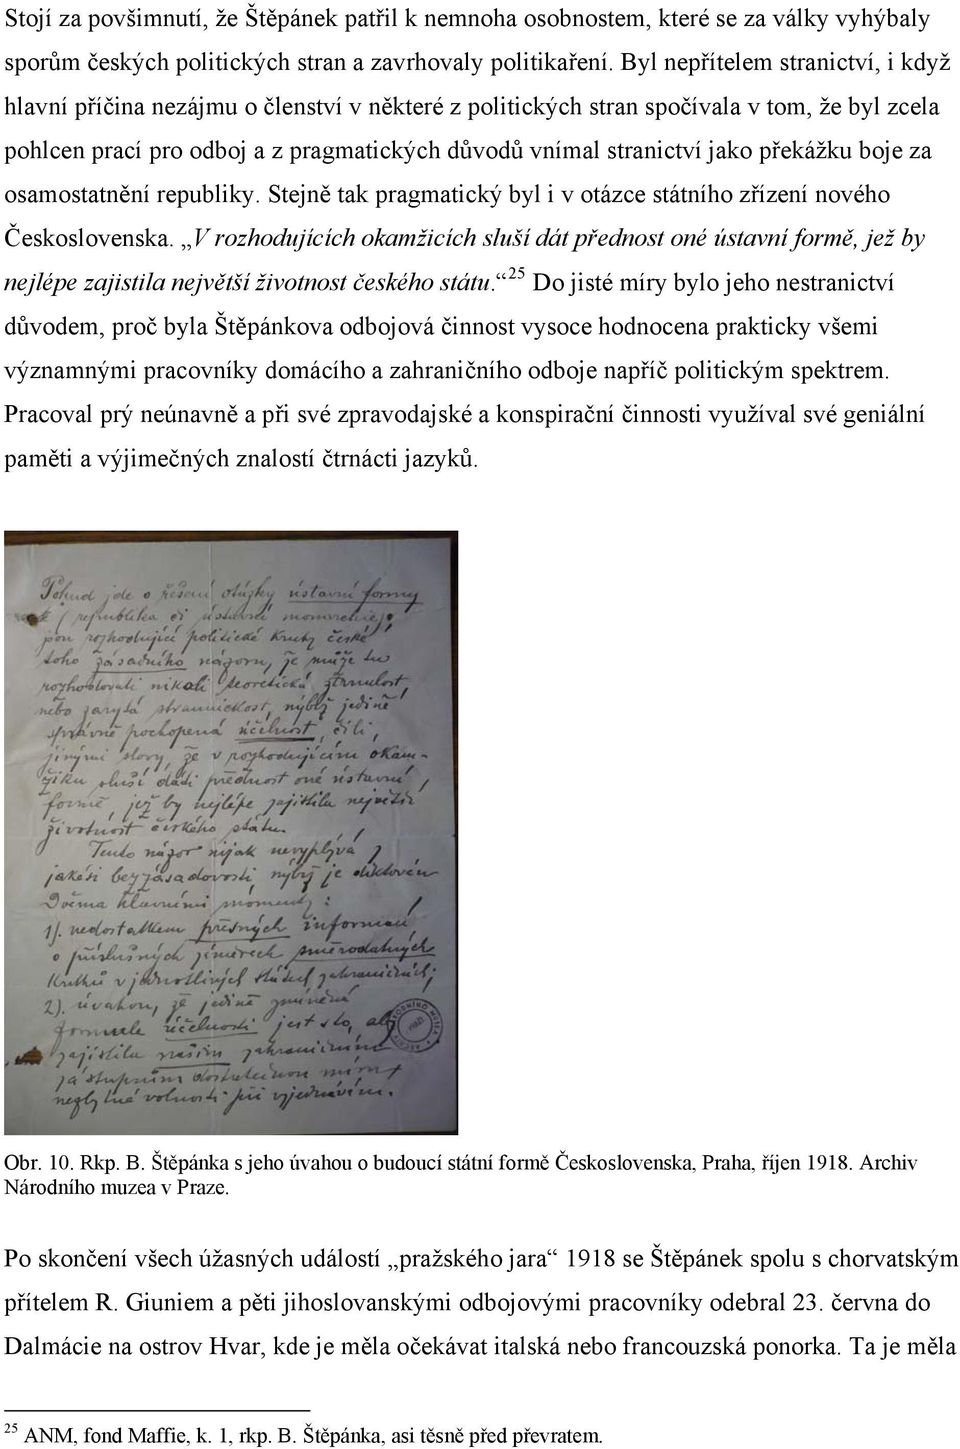 Stojí za povšimnutí, že Štěpánek patřil k nemnoha osobnostem, které se za války vyhýbaly
sporům českých politických stran a zavrhovaly politikaření. Byl nepřítelem stranictví, i když
hlavní příčina nezájmu o členství v některé z politických stran spočívala v tom, že byl zcela
pohlcen prací pro odboj a z pragmatických důvodů vnímal stranictví jako překážku boje za
osamostatnění republiky. Stejně tak pragmatický byl i v otázce státního zřízení nového
Československa. „V rozhodujících okamžicích sluší dát přednost oné ústavní formě, jež by
nejlépe zajistila největší životnost českého státu.“ 25 Do jisté míry bylo jeho nestranictví
důvodem, proč byla Štěpánkova odbojová činnost vysoce hodnocena prakticky všemi
významnými pracovníky domácího a zahraničního odboje napříč politickým spektrem.
Pracoval prý neúnavně a při své zpravodajské a konspirační činnosti využíval své geniální
paměti a výjimečných znalostí čtrnácti jazyků.
Pokud jde o řešení otázky ústavní formy
(republika či ústavní monarchie),
jsou rozhodující politické kruhy české
toho zásadního názoru, že může tu
rozhodovati nikoli teoretická ztrnulost
nebo zarytá strannickost, nýbrž jedině
správně pochopená účelnost, čili,
jinými slovy, že v rozhodujícím okam-
žiku sluší dáti přednost oné ústavní
formě, jež by nejlépe zajistila největší
životnost českého státu.
Tento názor nijak nevyplývá z
jakési bezzásadovosti, nýbrž je diktován
Dvěma hlavními momenty:
1). nedostatkem přesných informací
o příslušných záměrech směrodatných
kruhů v jednotlivých státech zahraničních;
2). úvahou, že jedině zmíněná
formule účelnosti jest s to, aby
zajistila našim zahraničním
zástupcům dostatečnou míru
nezbytné volnosti při vyjednávání.
Obr. 10. Rkp. B. Štěpánka s jeho úvahou o budoucí státní formě Československa, Praha, říjen 1918. Archiv
Národního muzea v Praze.
Po skončení všech úžasných událostí „pražského jara“ 1918 se Štěpánek spolu s chorvatským
přítelem R. Giuniem a pěti jihoslovanskými odbojovými pracovníky odebral 23. června do
Dalmácie na ostrov Hvar, kde je měla očekávat italská nebo francouzská ponorka. Ta je měla
25 ANM, fond Maffie, k. 1, rkp. B. Štěpánka, asi těsně před převratem.